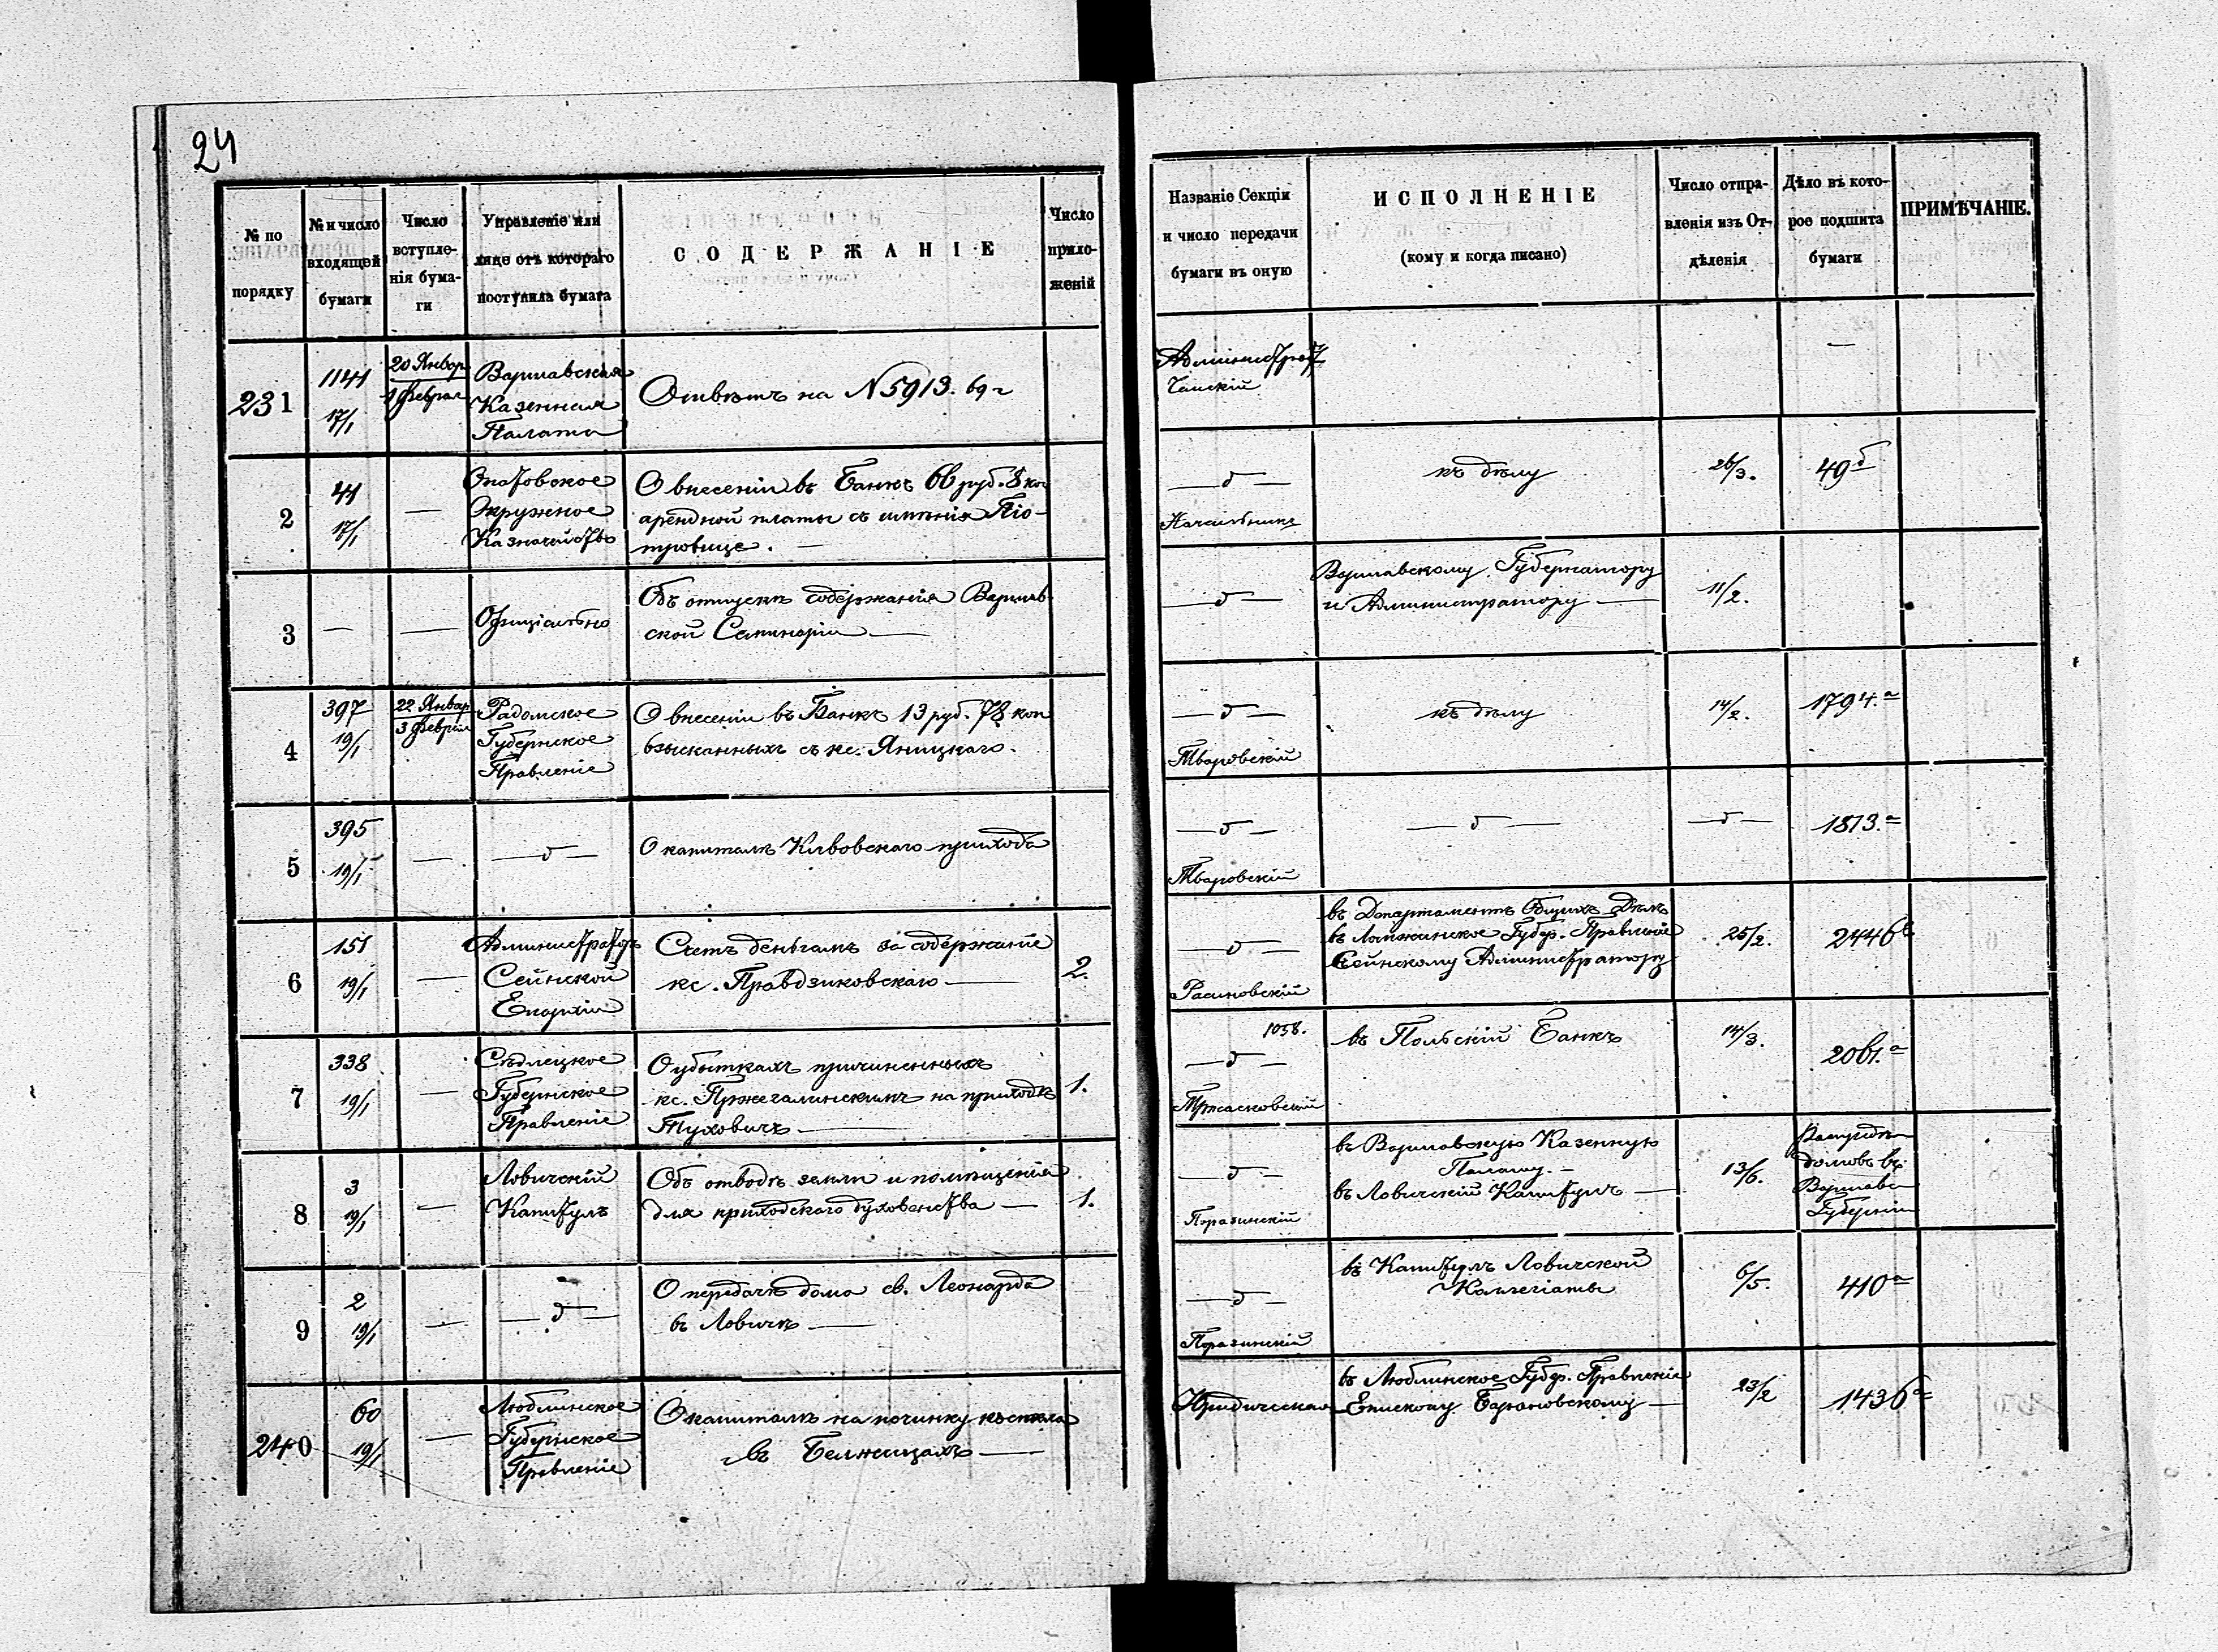 24
№ по порядку
№ и число входящей бумаги
Число вступле-нія бума-ги
Управленіе или лице отъ котораго поступила бумага
СОДЕРЖАНІЕ
Число прило-женій
Названіе Секціи и число передачи бумаги въ оную
ИСПОЛНЕНІЕ
(кому и когда писано)
Число отпра-вленія изъ От-дѣленія
Дѣло въ кото-рое подшита бумаги
ПРИМѢЧАНІЕ.
231
1141
17/1
20 Январ
1 Феврал
Варшавская
Казенная
Палата
Отвѣтъ на №5913. 69 г
—
2
41
17/1
—
Опатовское
Окружное
Казначейство
О внесеніи въ Банкъ 66 руб. 8 коп
арендной платы съ имѣнія Піо-
тровице. —
— д —
къ дѣлу
26/3.
49 б
3
—
—
Офиціально
Объ отпускѣ содержанія Варшав-
ской Семинаріи —
— д —
Варшавскому Губернатору
и Администратору —
11/2.
4
397
19/1
22 Январ
3 Феврал
Радомское
Губернское
Правленіе
О внесеніи въ Банкъ 13 руб. 78 коп
взысканныхъ съ кс. Яницкаго.
— д —
Тваровскій
къ дѣлу
14/2.
1794. а
5
395
19/1
—
— д —
О капиталѣ Клвовскаго прихода
— д —
Тваровскій
— д —
— д —
1813. а
6
151
19/1
—
Администраторъ
Сейнской
Епархіи
Счетъ деньгамъ за содержаніе
кс. Правдзиковскаго —
2.
— д —
въ Департаментъ Общихъ Дѣлъ
въ Ломжинское Губер. Правленіе
Сейнскому Администратору
25/2.
2446
7
338
19/1
—
Сѣдлецкое
Губернское
Правленіе
О убыткахъ причиненныхъ
кс. Пржегалинскимъ на приходѣ
Туховичъ —
1.
1058.
— д —
въ Польскій Банкъ
14/3.
2061. а
8
3
19/1
—
Ловичскій
Капитулъ
Объ отводѣ земли и помѣщенія
для приходскаго духовенства —
1.
— д —
въ Варшавскую Казенную
Палату. —
въ Ловичскій Капитулъ —
13/6.
домовъ въ
Варшавс
Губерніи
9
2
19/1
—
— д —
О передачѣ дома св. Леонарда
въ Ловичѣ —
— д —
въ Капитулъ Ловичской
Каллегіаты
6/5.
410 а
240
60
19/1
—
Люблинское
Губернское
Правленіе
О капиталѣ на починку костела
въ Белжицахъ —
Юридическая
въ Люблинское Губер. Правленіе
Епископу Барановскому —
23/2
1436 а